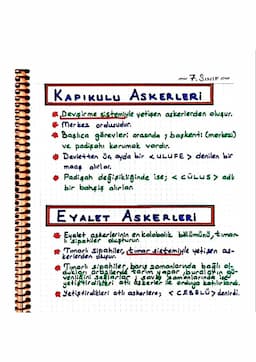 7. SINIF
KAPIKULU ASKERLERİ
Devşirme sistemiyle yetişen askerlerden oluşur.
Merkez ordusudur.
Başlıca görevleri arasında, başkenti (merkezi)
ve padişahı korumak vardır.
Devletten üç ayda bir <ULUFE> denilen bir
maaş alırlar.
Padişah değişikliğinde ise; <CÜLUS> adlı
bir bahşiş alırlar.
EYALET ASKERLERİ
Eyalet askerlerinin en kalabalık bölümünü, tımar-
lı sipahiler oluşturur.
Tımarlı sipahiler, tımar sistemiyle yetişen as-
kerlerden oluşur.
Tımarlı sipahiler, barış zamanlarında bağlı ol-
dukları arazilerde tarım yapar, buraların gü-
venliğini sağlarlar; savaş zamanlarında ise
yetiştirdikleri atlı askerler ile orduya katılırlardı.
Yetiştirdikleri atlı askerlere; <CEBELÜ> denirdi.